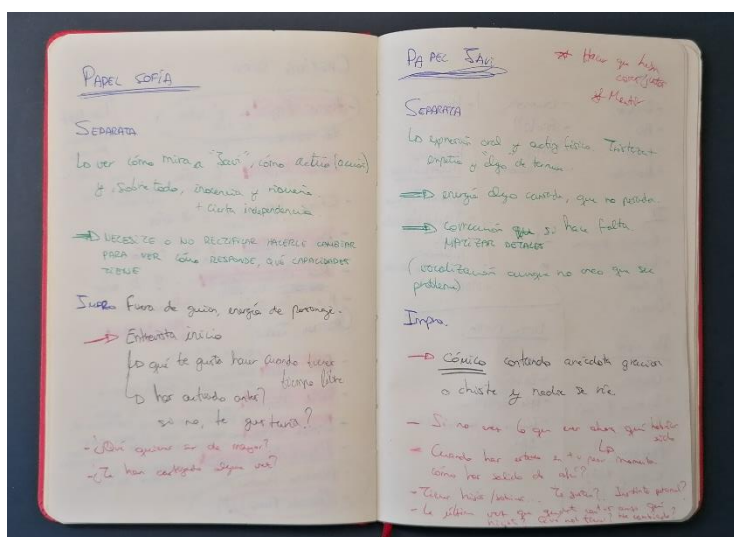 PAPEL SOFÍA
SEPARATA
Lo ver cómo mira a "Javi", cómo actúa (acción)
y, sobre todo, inocencia y risueña
+ cierta independencia
NECESITE O NO RECTIFICAR HACERLE CAMBIAR
PARA VER CÓMO RESPONDE, QUÉ CAPACIDADES
TIENE
Impro Fuera de guion, energía de personaje.
Entrevista inicio
qué te gusta hacer cuando tienes
tiempo libre
has actuado antes?
si no, te gustaría?
- ¿Qué quieres ser de mayor?
- ¿Te han castigado alguna vez?
PAPEL JAVI
* Hacer que
* Mentir
SEPARATA
expresión oral y actitud física Tristeza +
y algo de
energía algo cansada, que no
corrección si hace falta
MATIZAR DETALLES
(vocalización aunque no creo que sea
problema)
Impro.
Cómico contando anécdota graciosa
o chiste y nadie se ríe
- Si no ver lo que eres ahora qué habrías
sido
- Cuando has estado en tu peor momento
cómo has salido de ahí?
- Tienes hijos / Instinto
- La última vez que